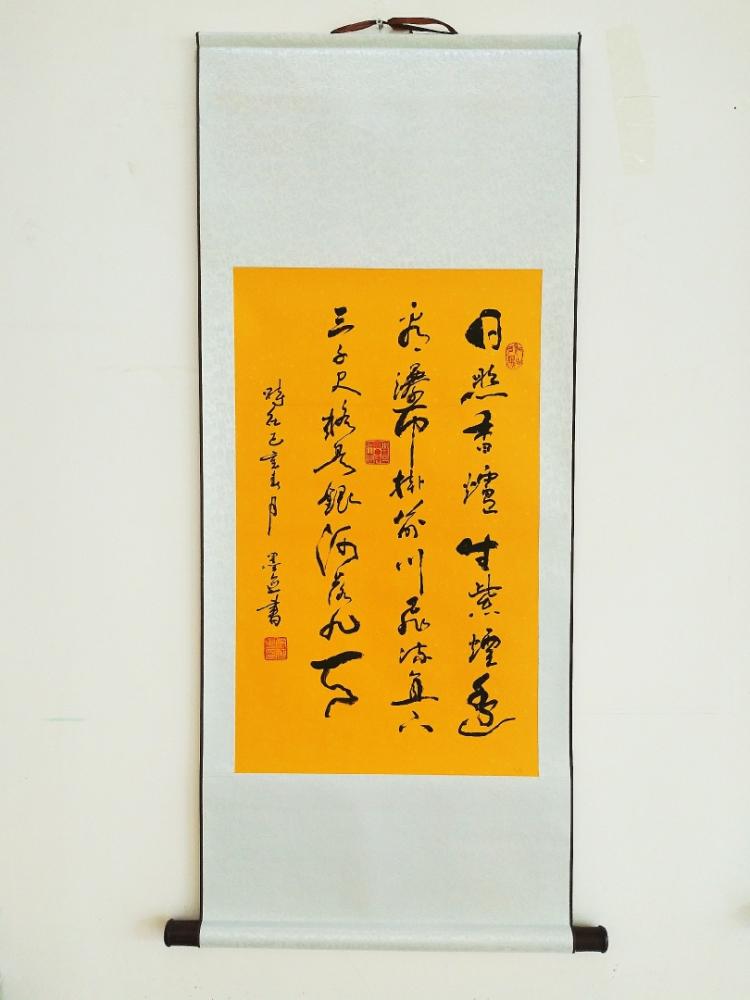 日照香爐生紫煙遙
看瀑布掛前川飛流直下
三千尺疑是銀河落九天
時在己亥春月 墨逸書